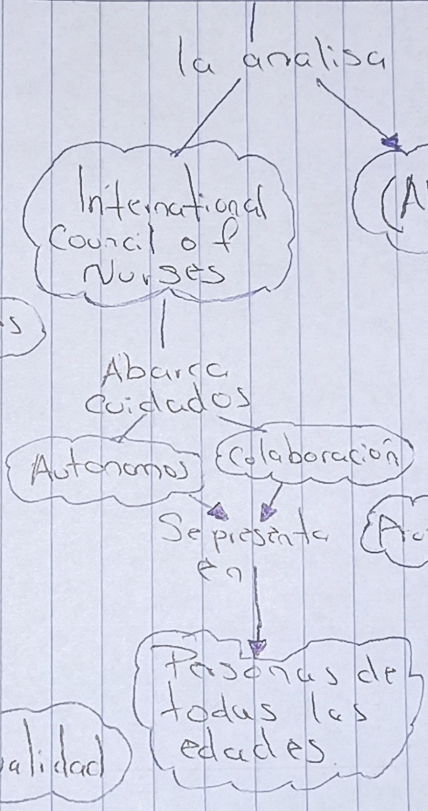 la analisa
International
Council of
Nurses
(A
s
Abarca
cuidados
Autonomos
Colaboración
Se presenta
en
Personas de
todas las
edades
alidad